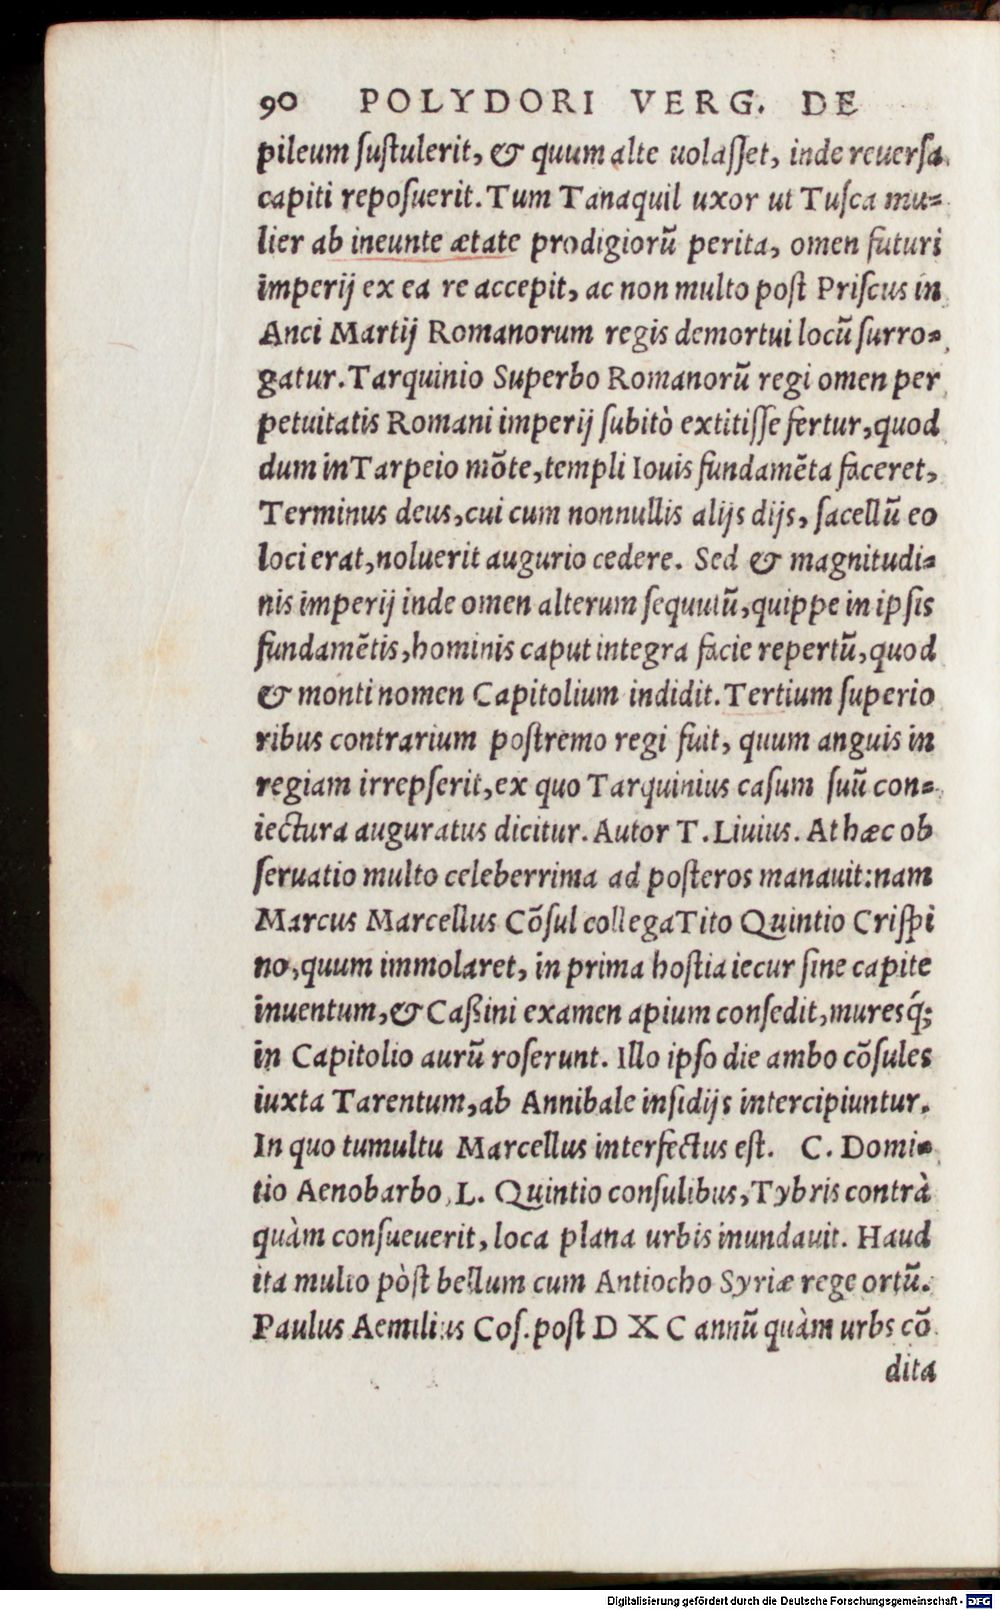 90 POLYDORI VERG. DE
pileum ſuſtulerit, & quum alte uolaſſet, inde reuerſa
capiti repoſuerit. Tum Tanaquil uxor ut Tuſca mu=
lier ab ineunte ætate prodigiorũ perita, omen futuri
imperij ex ea re accepit, ac non multo poſt Priſcus in
Anci Martij Romanorum regis demortui locũ ſurro=
gatur. Tarquinio Superbo Romanorũ regi omen per
petuitatis Romani imperij ſubitò extitiſſe fertur, quod
dum in Tarpeio mõte, templi Iouis fundamẽta faceret,
Terminus deus, cui cum nonnullis alijs dijs, ſacellũ eo
loci erat, noluerit augurio cedere. Sed & magnitudi=
nis imperij inde omen alterum ſequutũ, quippe in ipſis
fundamẽtis, hominis caput integra facie repertũ, quod
& monti nomen Capitolium indidit. Tertium ſuperio
ribus contrarium poſtremo regi fuit, quum anguis in
regiam irrepſerit, ex quo Tarquinius caſum ſuũ con=
iectura auguratus dicitur. Autor T. Liuius. At hæc ob
ſeruatio multo celeberrima ad poſteros manauit: nam
Marcus Marcellus Cõſul collega Tito Quintio Criſpi
no, quum immolaret, in prima hoſtia iecur ſine capite
inuentum, & Caßini examen apium conſedit, muresq́;
in Capitolio aurũ roſerunt. Illo ipſo die ambo cõſules
iuxta Tarentum, ab Annibale inſidijs intercipiuntur.
In quo tumultu Marcellus interfectus eſt. C. Domi=
tio Aenobarbo, L. Quintio conſulibus, Tybris contrà
quàm conſueuerit, loca plana urbis inundauit. Haud
ita multo pòſt bellum cum Antiocho Syriæ rege ortũ.
Paulus Aemilius Coſ. poſt D X C annũ quàm urbs cõ
dita
Digitalisierung gefördert durch die Deutsche Forschungsgemeinschaft - DFG